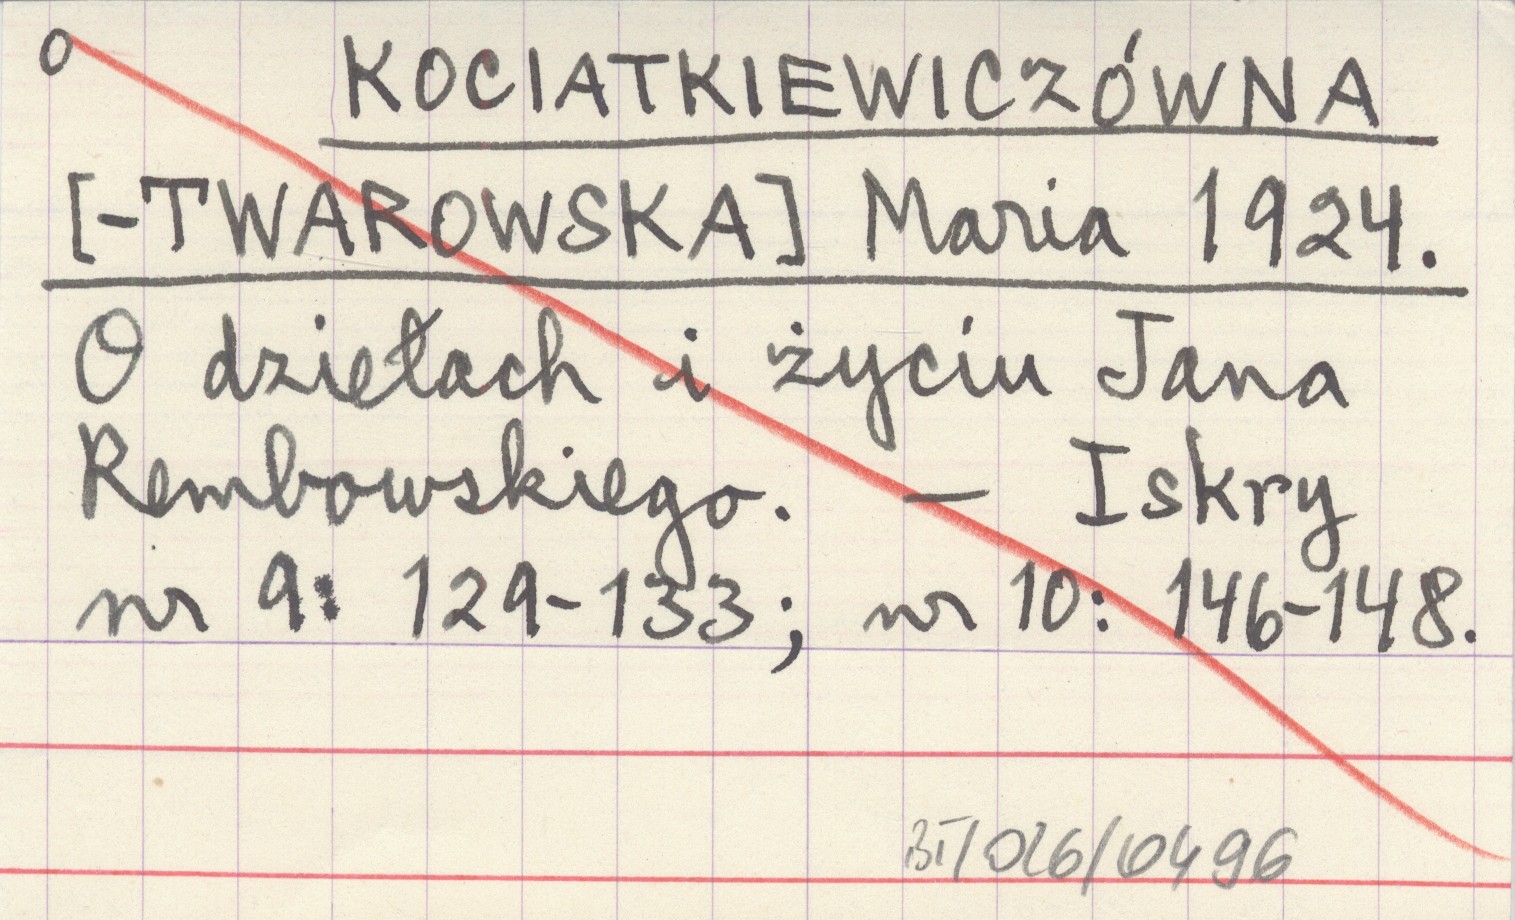 o KOCIATKIEWICZÓWNA
[-TWAROWSKA] Maria 1924.
O dziełach i życiu Jana
Rembowskiego. — Iskry
nr 9: 129-133; nr 10: 146-148.
BT/026/0496